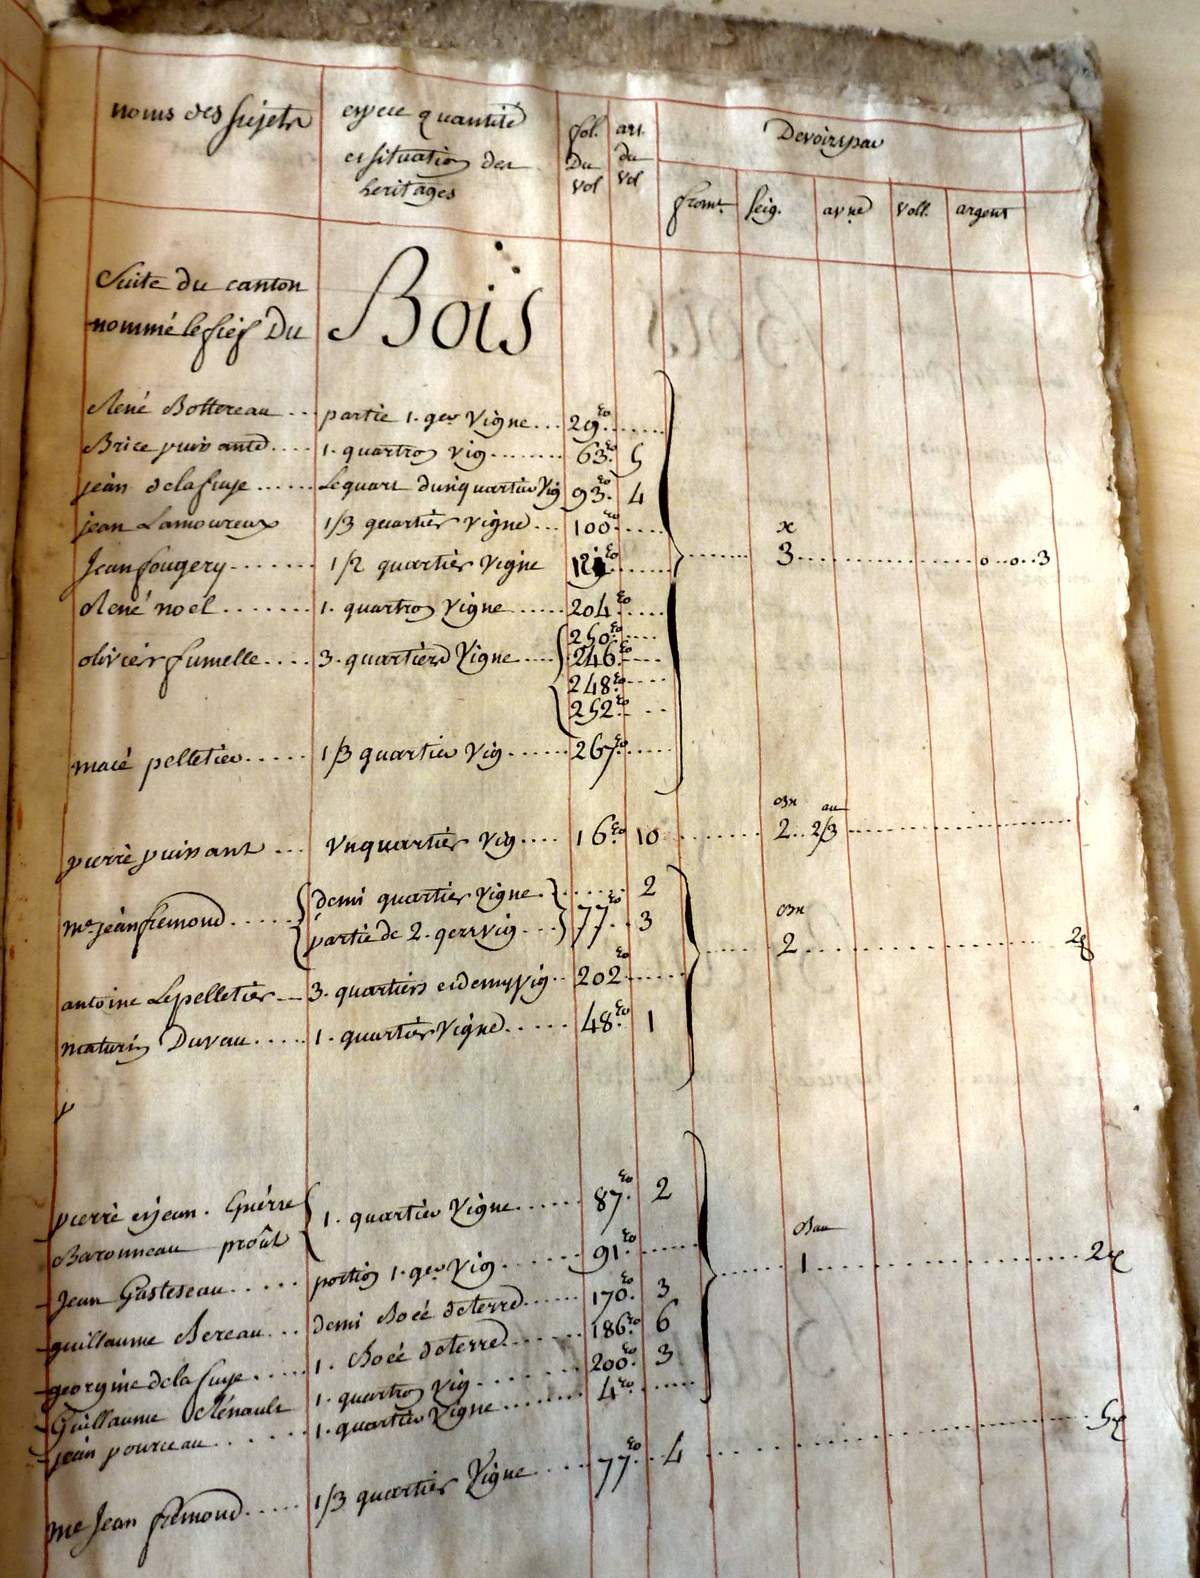 noms des sujets
espece quantité
et situation des
heritages
fol.
Du
vol
art.
du
vol
Devoirs par
fromt. seig. avne voll. argent
Suite du canton
nommé le fief Du Bois
René Bottereau partie 1. qer Vigne 29. ro
Brice puissant 1. quartron vig 63. ro 5
jean delafuye Le quart dunquartier Vig 93. ro 4
jean Lamoureux 1/3 quartier vigne 100 ro
x
Jean fougery 1/2 quartier vigne ro 3 0 0 3
René noel 1. quartron vigne 204 ro
250. ro
olivier fumelle 3. quartiers Vigne 246. ro
248. ro
252. ro
macé pelletier 1/3 quartier vig 267. ro
ozn au
pierre puissant Vn quartier vig 16. ro 10 2 2/3
me. jean fremond demi quartier vigne 2
partie de 2. qers vig 77. ro 3
ozn
2
antoine Lepelletier 3. quartiers et demy vig 202 ro
maturin Duvau 1. quartier vigne 48. ro 1
p
pierre et jean. Guérre 1. quartier Vigne 87. ro 2
Baronneau proût
Jean Gasteseau portion 1. qer vig 91. ro
Bau
1
guillaume Bereau demi Boéé de terre 170. ro 3
georgine dela fuye 1. Boéé de terre 186. ro 6
Guillaume Rénault 1. quartron vig 200. ro 3
jean pourceau 1. quartier Vigne 4. ro
me Jean fremond 1/3 quartier Vigne 77. ro 4